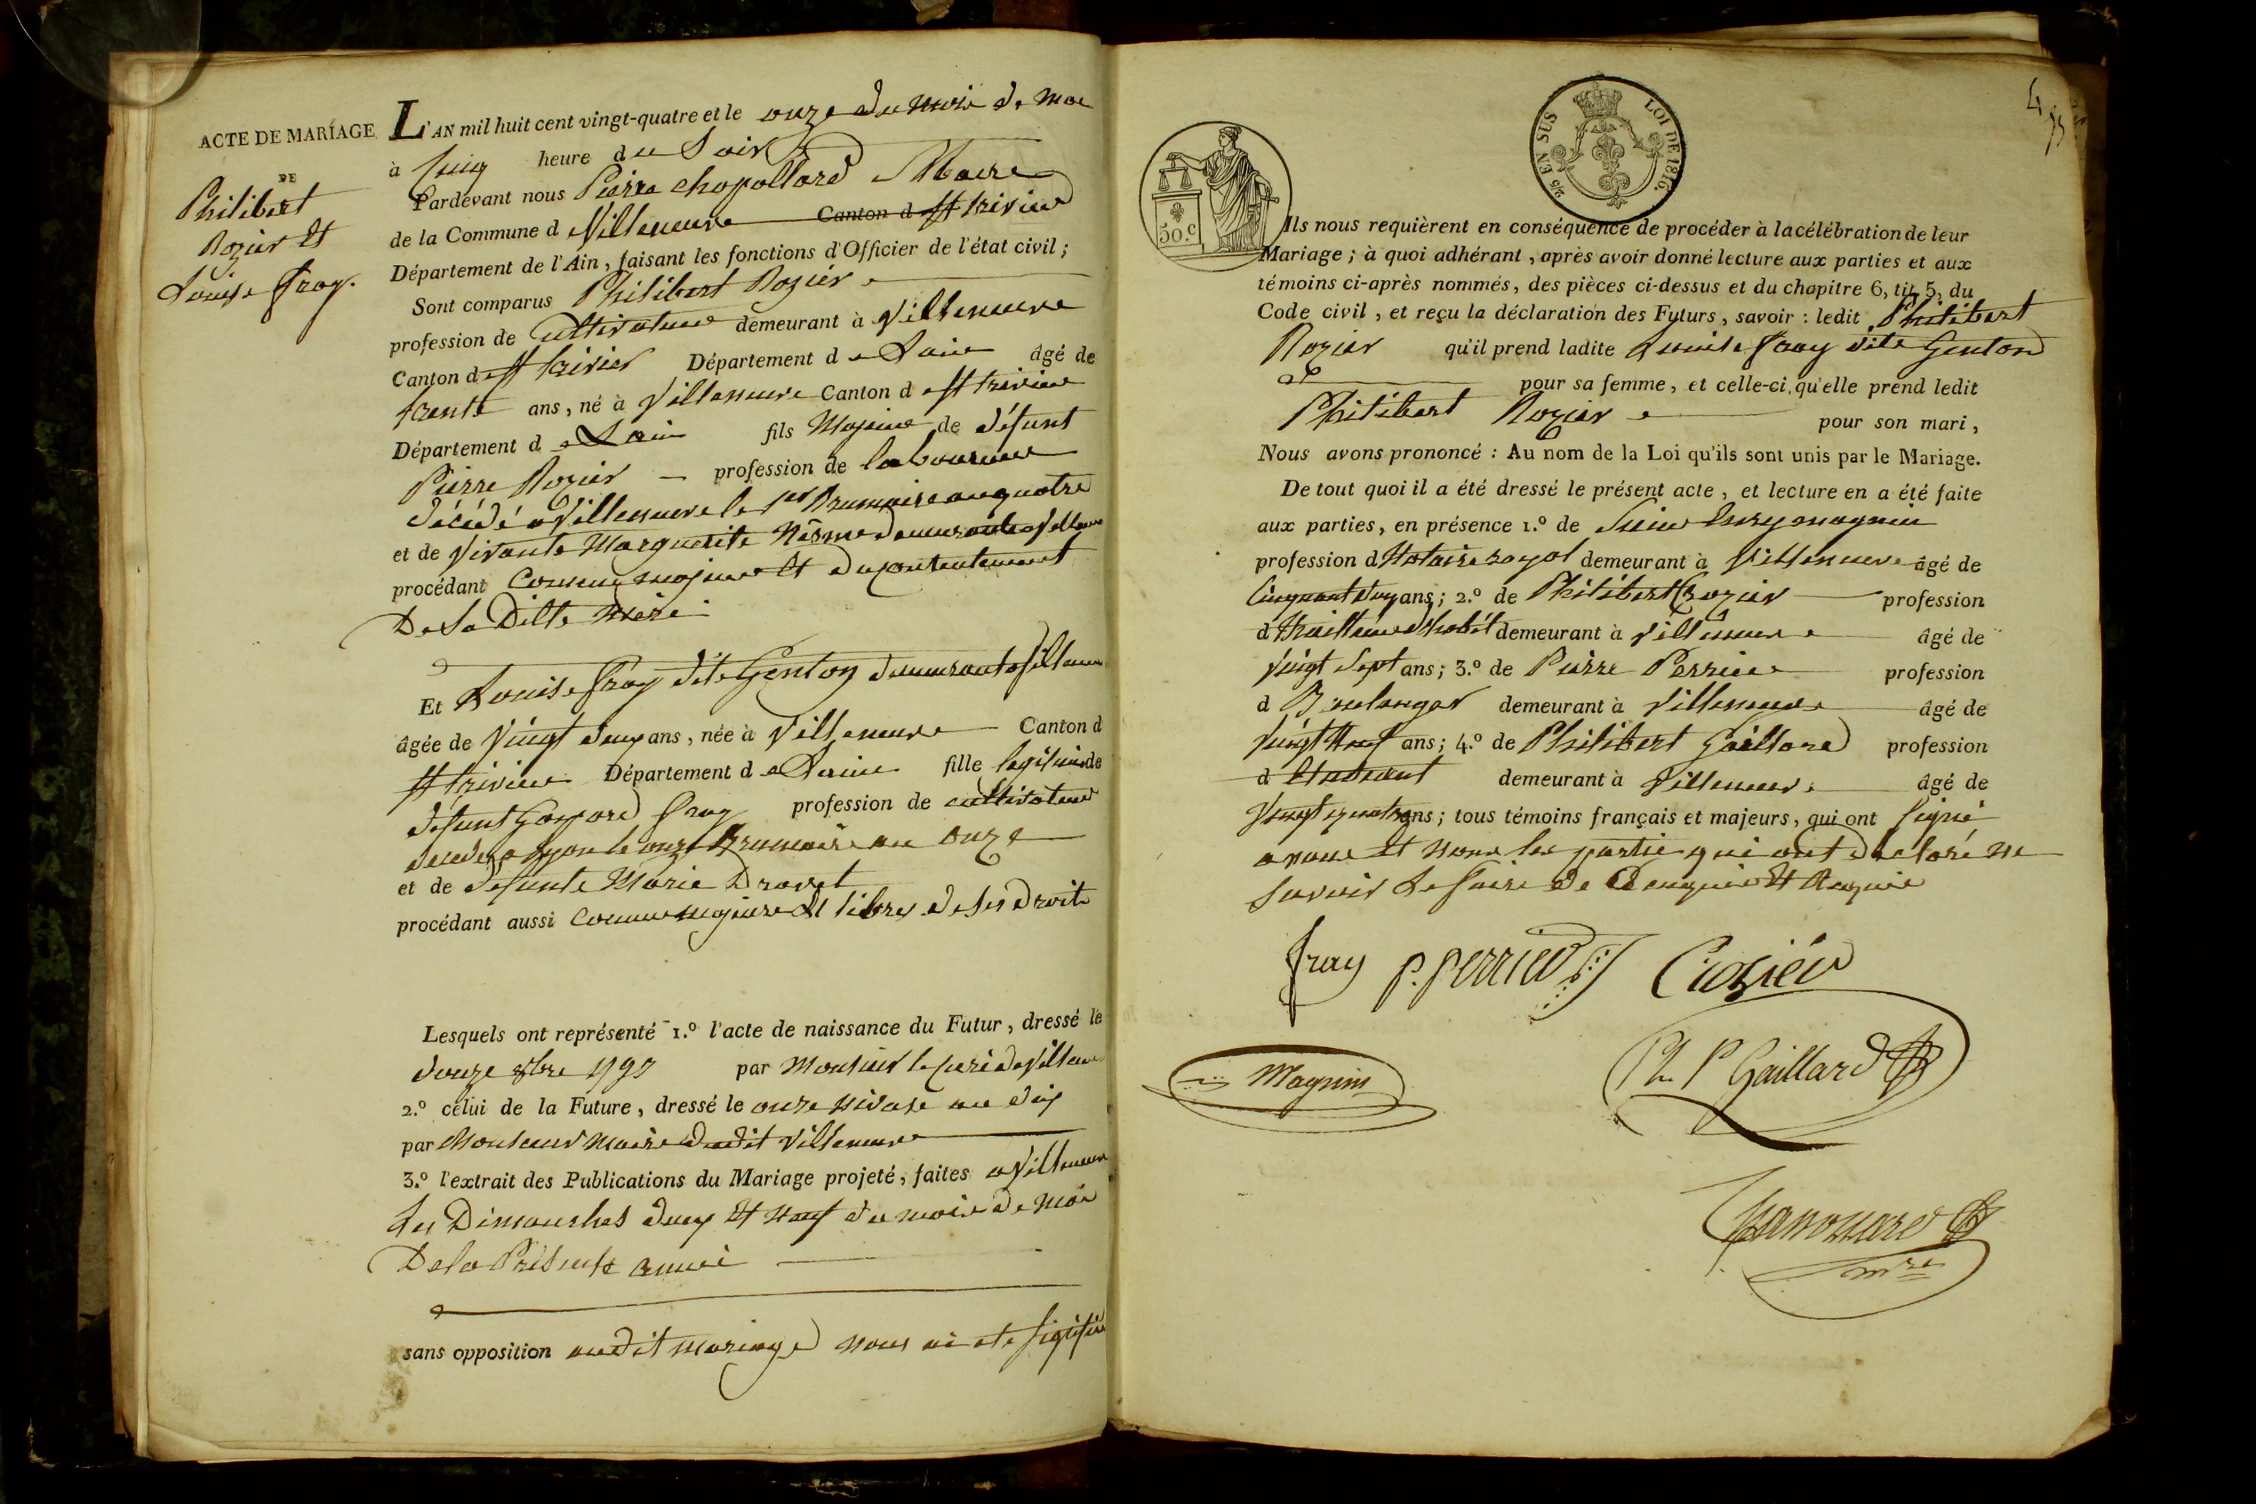 ACTE DE MARIAGE
DE
Philibert
Rozier Et
Louise fray.
L'AN mil huit cent vingt-quatre et le onze du mois de mai
à Cinq heure du Soir
Pardevant nous Pierre chapollard Maire
de la Commune d Villeneuve Canton d St trivier
Département de l'Ain, faisant les fonctions d'Officier de l'état civil;
Sont comparus Philibert Rozier
profession de Cultivateur demeurant à Villeneuve
Canton d St trivier Département d Lain âgé de
trente ans, né à Villeneuve Canton d St trivier
Département d Lain fils Majeur de défunt
Pierre Rozier profession de laboureur
décédé a Villeneuve le 1er Brumaire an quatre
et de Vivante Marguerite demeurante a Villeneuve
procédant Comme majeur Et du consentement
De Sa Ditte Mère
Et Louise fray dite Genton demeurante a Villeneuve
âgée de Vingt deux ans, née à Villeneuve Canton d
St trivier Département d Lain fille legitime de
défunt Gaspard fray profession de cultivateur
décédé a Lyon le onze Brumaire an onze
et de défunte Marie Dravet
procédant aussi comme majeure Et libre de ses droits
Lesquels ont représenté 1.º l'acte de naissance du Futur, dressé le
douze 8bre 1793 par Monsieur le Curé de Villeneuve
2.º celui de la Future, dressé le onze nivose an dix
par Monsieur Maire dudit Villeneuve
3.º l'extrait des Publications du Mariage projeté, faites a Villeneuve
Les Dimanches deux Et neuf du mois de mai
De la Présente année
sans opposition audit mariage nous ai eté signifié
50.C
2/5 EN SUS LOI DE 1816.
4
Ils nous requièrent en conséquence de procéder à la célébration de leur
Mariage; à quoi adhérant, après avoir donné lecture aux parties et aux
témoins ci-après nommés, des pièces ci-dessus et du chapitre 6, tit. 5, du
Code civil, et reçu la déclaration des Futurs, savoir: ledit Philibert
Rozier qu'il prend ladite Louise fray dite Genton
pour sa femme, et celle-ci qu'elle prend ledit
Philibert Rozier pour son mari,
Nous avons prononcé: Au nom de la Loi qu'ils sont unis par le Mariage.
De tout quoi il a été dressé le présent acte, et lecture en a été faite
aux parties, en présence 1.º de magnin
profession d Notaire royal demeurant à Villeneuve âgé de
Cinquante deux ans; 2.º de Philibert Crozier profession
d tailleur d'habit demeurant à Villeneuve âgé de
Vingt Sept ans; 3.º de Pierre Perrier profession
d Boulanger demeurant à Villeneuve âgé de
Vingt Neuf ans; 4.º de Philibert Gaillard profession
d Etudiant demeurant à Villeneuve âgé de
Vingt quatre ans; tous témoins français et majeurs, qui ont signé
avous Et nous les partie qui ont declaré ne
Savoir Le faire de Ce enquis Et Requis
fray P. perrier Crozier
Magnin
Ph P Gaillard
mre